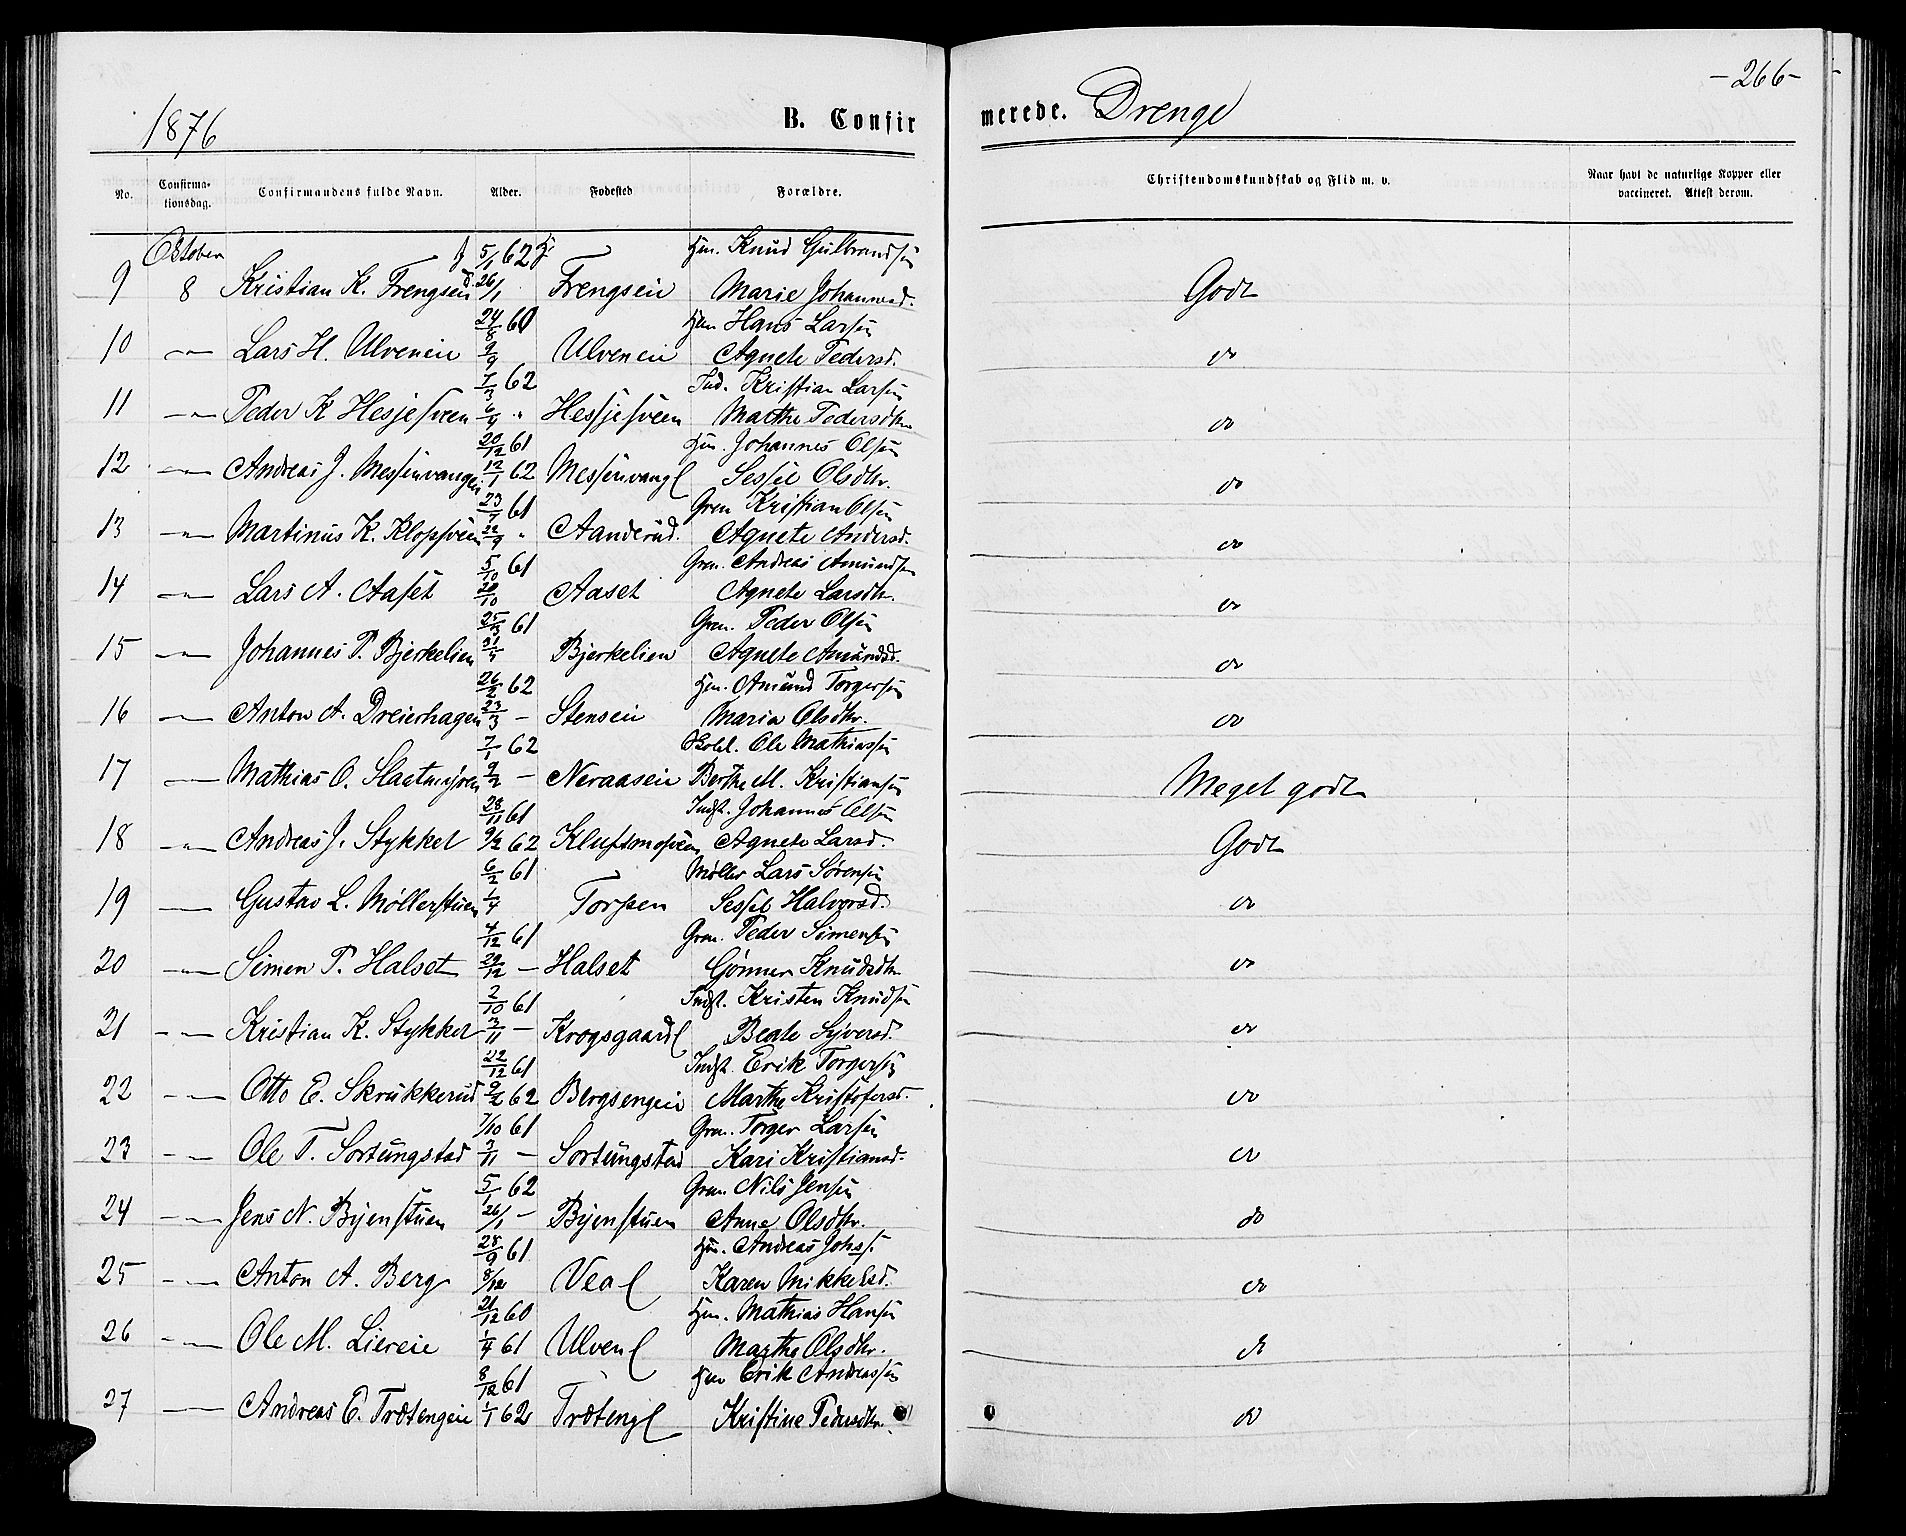 -266-
1876 B. Confirmerede. Drenge
No. Confirmationsdag. Confirmandens fulde Navn. Alder. Fødested Forældre. Christendomskundskab og Flid m. v. Naar havt de naturlige Kopper eller vaccineret. Attest derom.
October f 5/1 62 Hm. Knud Gulbrandsen
9 8 Kristian K. Frengseie d. 26/1 Frengseie Marie Johannesd. Godt
24/8 60 Hm Hans Larsen
10 -"- Lars H. Ulveneie 9/9 Ulveneie Agnete Pedersd. do
7/3 62 Ind. Kristian Larsen
11 -"- Peder K Hesjesveen 6/4 " Hessjesveen Marthe Pedersdtr do
20/12 61 Hm. Johannes Olsen
12 -"- Andreas J. Messenvangen 12/1 62 Messenvangl Sessel Olsdtr. do
23/7 61 Grm Kristian Olsen
13 -"- Martinus K. Klopsveen 22/9 " Aanderud. Agnete Andersd. do
5/10 61 Grm. Andreas Amundsen
14 -"- Lars A. Aaset 20/10 Aaset Agnete Larsdtr. do
25/3 61 Grm. Peder Olsen
15 -"- Johannes P. Bjerkelien 31/3 Bjerkelien Agnete Amundsd. do
26/2 62 Hm. Amund Torgersen
16 -"- Anton A. Dreierhagen 23/3 - Stenseie Maria Olsdtr. do
7/1 62 Ole Mathiassen
17 -"- Mathias O. Slaatmyren 9/2 - Neraaseie Berthe M. Kristiansen Meget godt
28/11 61 Indst. Johannes Olsen
18 -"- Andreas J. Stykket 9/2 62 Kluftmosveen Agnete Larsd. Godt
6/2 61 Møller Lars Sørensen
19 -"- Gustav L. Møllerstuen 1/4 Torpen Sessel Halvorsd. do
4/12 61 Grm. Peder Simensen
20 -"- Simen P. Halset 29/12 - Halset Gønner Knudsdtr do
2/10 61 Indst. Kristen Knudsen
21 -"- Kristian K. Stykket 3/11 - Krogsgaardl Beate Syversd. do
22/12 61 Indst. Erik Torgersen
22 -"- Otto E. Skrukkerud 9/2 62 Bergsengeie Marthe Kristofersd. do
7/10 61 Grm. Torger Larsen
23 -"- Ole T. Sortungstad 3/11 - Sortungstad Kari Kristiansd. do
5/1 62 Grm. Nils Jensen
24 -"- Jens N. Byenstuen 26/1 - Byenstuen Anne Olsdtr. do
28/9 61 Hm. Andreas Johs.
25 -"- Anton A. Berg 8/12 Veal Karen Mikkelsd. do
21/12 60 Hm. Mathias Hansen
26 -"- Ole M. Liereie 1/4 61 Ulvenl Marthe Olsdtr. do
8/12 61 Hm Erik Andreassen
27 -"- Andreas E. Trætengeie 1/1 62 Trætengl Kristine Pedersdtr. do